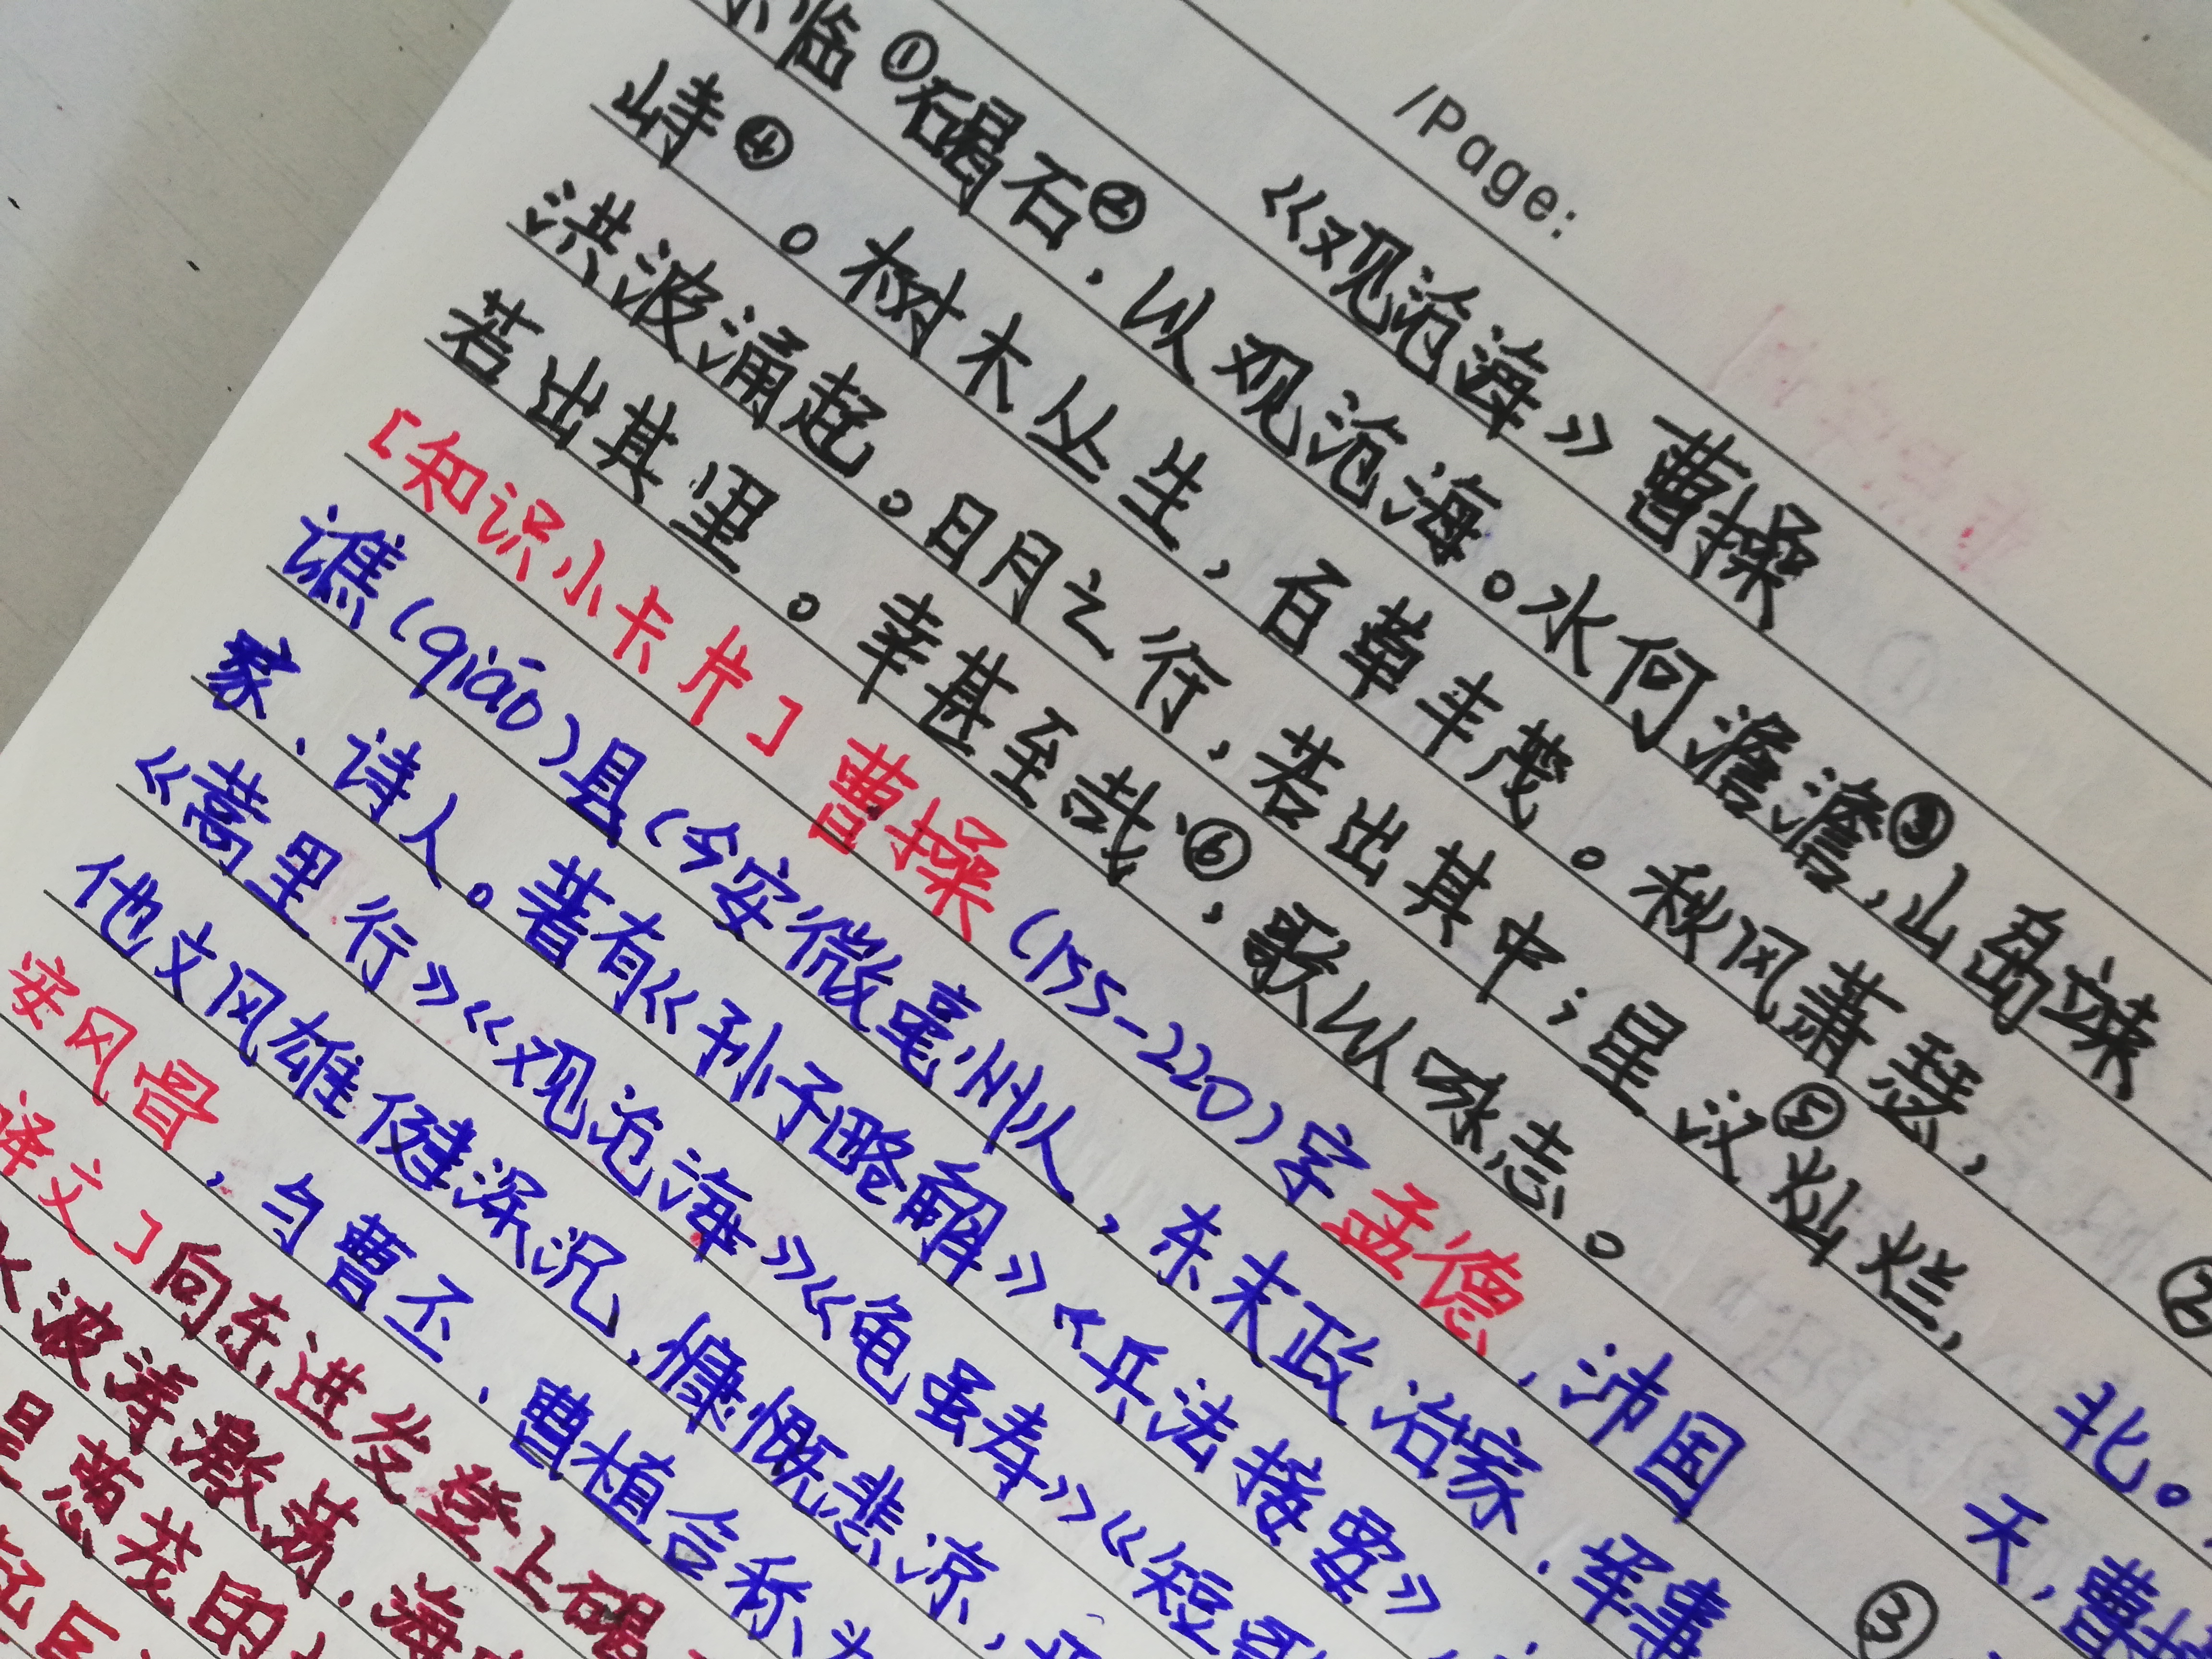 /Page:
《观沧海》 曹操
东临①碣石②，以观沧海。水何澹澹③，山岛竦
峙④。树木丛生，百草丰茂。秋风萧瑟，
洪波涌起。日月之行，若出其中；星汉⑤灿烂，
若出其里。幸甚至哉⑥，歌以咏志。
[知识小卡片] 曹操 (155-220) 字孟德，沛国
谯(qiáo)县(今安微亳州人，东末政治家、军事
家、诗人。著有《孙子略解》《兵法接要》
《蒿里行》《观沧海》《龟虽寿》《短歌
他文风雄健深沉，慷慨悲凉，
安风骨，与曹丕、曹植合称为
译文]向东进发登上碣
水波涛激荡，海
是葱茏的
②
北。
天，曹操
③